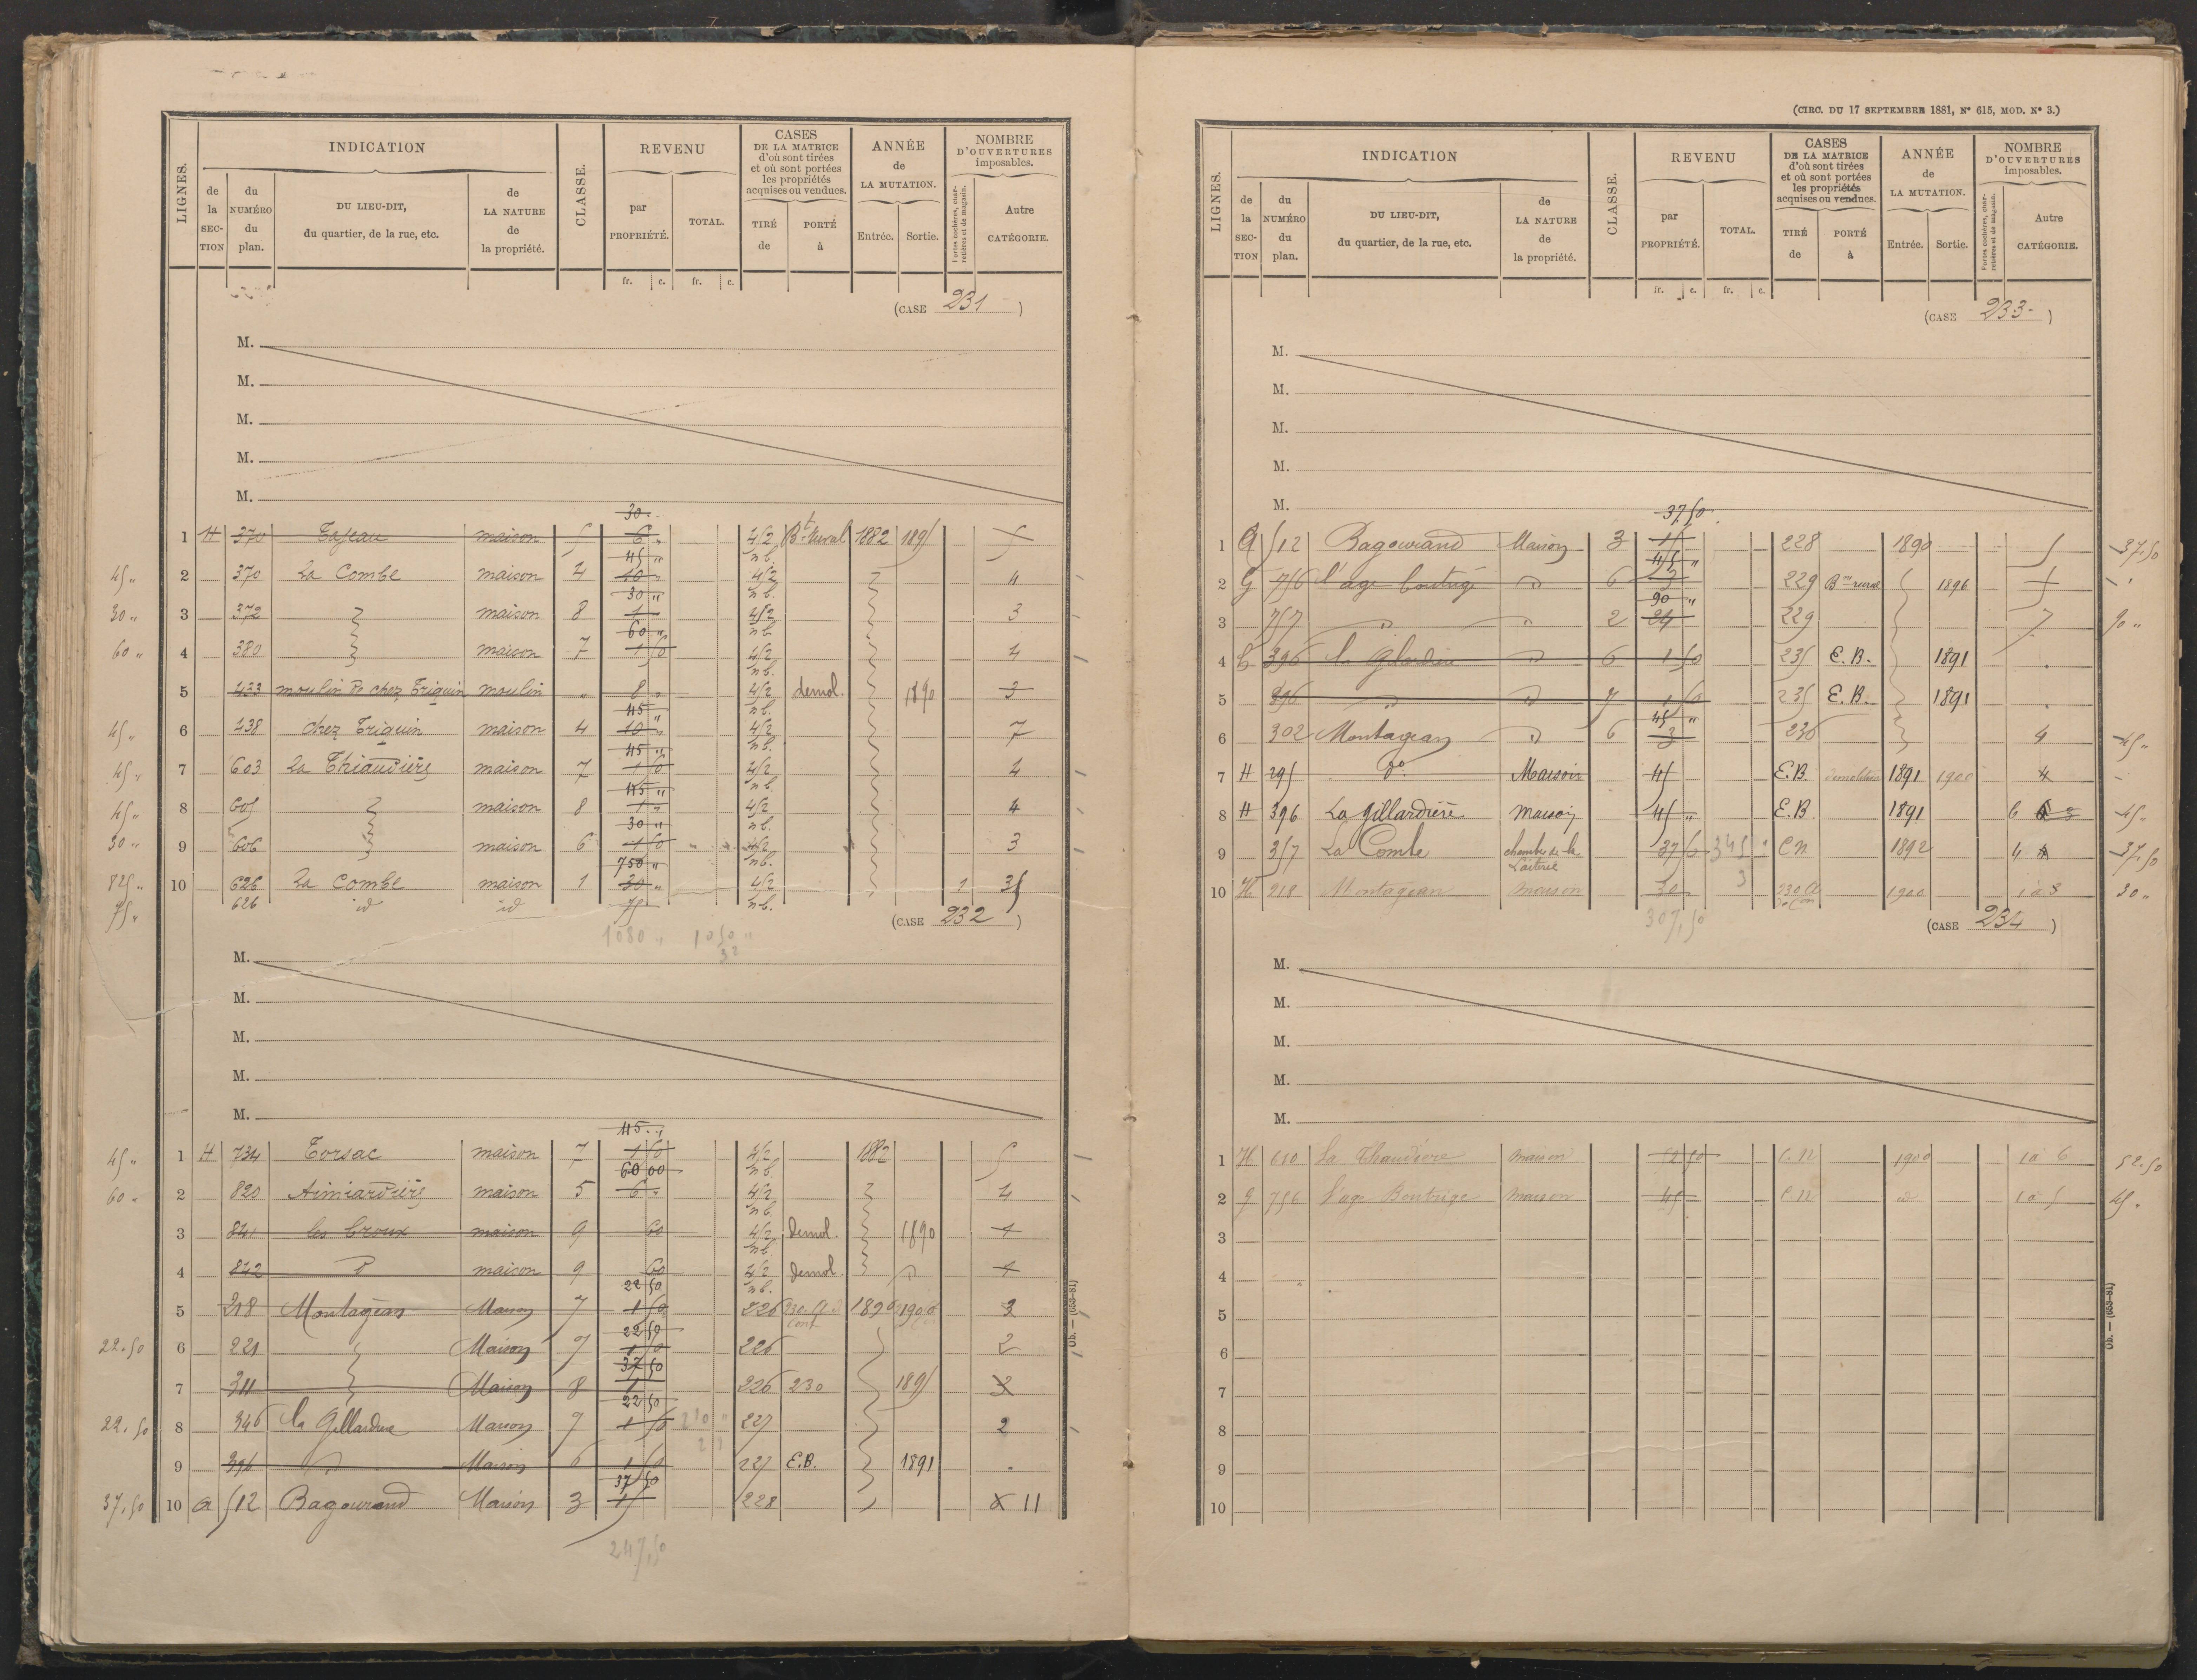 LIGNES.
INDICATION
de la SECTION
du NUMÉRO du plan.
DU LIEU-DIT, du quartier, de la rue, etc.
de LA NATURE de la propriété.
CLASSE.
REVENU
par PROPRIÉTÉ.
TOTAL.
CASES DE LA MATRICE d'où sont tirées et où sont portées les propriétés acquises ou vendues.
TIRÉ de
PORTÉ à
ANNÉE de LA MUTATION.
Entrée. Sortie.
NOMBRE D'OUVERTURES imposables.
Portes cochères, charretières et de magasin.
Autre CATÉGORIE.
fr. c. fr. c.
(CASE 231)
M.
M.
M.
M.
M.
30
1 H 370 maison 5 6 " 452 nb. Bt rural 1882 1895 5
45 "
45 " 2 370 La Combe maison 4 10 " 452 nb. 4
30 "
30 " 3 372 maison 8 1 " 452 nb. 3
60 "
60 " 4 380 maison 7 1 50 452 nb. 4
5 433 moulin de chez Triquin moulin " 8 " 452 nb. demol. 1890 3
45 "
45 " 6 438 chez Triquin maison 4 10 " 452 nb. 7
45 "
45 " 7 603 La Thiaudière maison 7 1 50 452 nb. 4
45 "
45 " 8 605 maison 8 1 " 452 nb. 4
30 "
30 " 9 606 maison 6 1 50 452 nb. 3
750 "
825 " 10 626 La Combe maison 1 30 " 452 nb. 1 35
75 " 626 id id 75
1080 " 1050 "
32
(CASE 232)
M.
M.
M.
M.
M.
45 "
45 " 1 H 734 Torsac maison 7 1 50 452 nb. 1882 5
60 00
60 " 2 820 maison 5 6 " 452 nb. 4
3 841 les Groux maison 9 60 452 nb. demol. 1890 1
4 842 d° maison 9 60 452 nb. demol. 1
22 50
5 218 Montagean Maison 7 1 50 226 1890 1900 3
22 50
22.50 6 221 Maison 7 1 50 226 2
37 50
7 311 Maison 8 1 226 230 1895 3
22 50
22.50 8 346 la Gillardière Maison 7 1 50 210 227 2
9 396 Maison 6 1 50 227 E.B. 1891
37 50
37,50 10 G 512 Bagourand Maison 3 15 228 11
247,50
Ob. — (653-81)
(CIRC. DU 17 SEPTEMBRE 1881, N° 615, MOD. N° 3.)
LIGNES.
INDICATION
de la SECTION
du NUMÉRO du plan.
DU LIEU-DIT, du quartier, de la rue, etc.
de LA NATURE de la propriété.
CLASSE.
REVENU
par PROPRIÉTÉ.
TOTAL.
CASES DE LA MATRICE d'où sont tirées et où sont portées les propriétés acquises ou vendues.
TIRÉ de
PORTÉ à
ANNÉE de LA MUTATION.
Entrée. Sortie.
NOMBRE D'OUVERTURES imposables.
Portes cochères, charretières et de magasin.
Autre CATÉGORIE.
fr. c. fr. c.
(CASE 233)
M.
M.
M.
M.
M.
37 50
1 G 512 Bagourand Maison 3 15 228 1890 5 37.50
45 "
2 G 756 l'age boutrige 6 3 229 Bm rural 1896
90 "
3 757 2 24 229 7 90 "
4 396 la Gilardière 6 1 50 235 E.B. 1891
5 396 7 1 50 235 E.B. 1891
45 "
6 302 Montagean 6 3 236 4 45 "
7 H 295 d° Maison 45 E.B. demolition 1891 1900 4
8 H 396 La Gillardière maison 45 " E.B. 1891 6 45 "
9 357 La Combe chambre de la Laiterie 37 50 345 C.N. 1892 4 37.50
3
10 H 218 Montagean maison 30 1900 1 à 3 30 "
307,50
(CASE 234)
M.
M.
M.
M.
M.
1 H 610 La Thaudiere maison 52 50 C.N 1900 1 à 6 52.50
2 G 756 L'age Bontrige maison 45 C.N id 1 à 5 45 "
3
4
5
6
7
8
9
10
Ob. — (653-81)